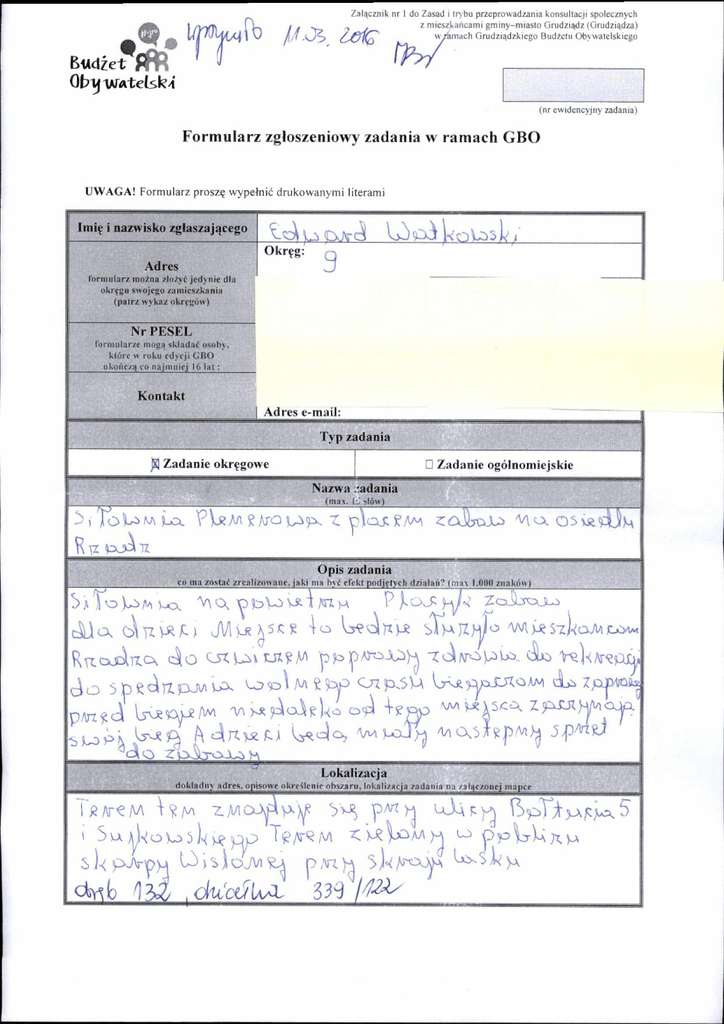 Załącznik nr 1 do Zasad i trybu przeprowadzania konsultacji społecznych
z mieszkańcami gminy–miasto Grudziądz (Grudziądza)
w ramach Grudziądzkiego Budżetu Obywatelskiego
wpłynęło 11.03.2016
Budżet
Obywatelski
(nr ewidencyjny zadania)
Formularz zgłoszeniowy zadania w ramach GBO
UWAGA! Formularz proszę wypełnić drukowanymi literami
Imię i nazwisko zgłaszającego
Edward Watkowski
Adres
formularz można złożyć jedynie dla
okręgu swojego zamieszkania
(patrz wykaz okręgów)
Okręg:
9
Nr PESEL
formularze mogą składać osoby,
które w roku edycji GBO
ukończą co najmniej 16 lat :
Kontakt
Adres e-mail:
Typ zadania
☒ Zadanie okręgowe
☐ Zadanie ogólnomiejskie
Nazwa zadania
(max. 15 słów)
Siłownia Plenerowa z placem zabaw na osiedlu
Rządz
Opis zadania
co ma zostać zrealizowane, jaki ma być efekt podjętych działań? (max 1.000 znaków)
Siłownia na powietrzu Placyk zabaw
dla dzieci Miejsce to będzie służyło mieszkańcom
Rządza do ćwiczeń poprawy zdrowia do rekreacji
do spędzania wolnego czasu biegaczom do zaprawy
przed biegiem niedaleko od tego miejsca zaczynają
swój bieg A dzieci będą miały następny sprzęt
do zabawy
Lokalizacja
dokładny adres, opisowe określenie obszaru, lokalizacja zadania na załączonej mapce
Teren ten znajduje się przy ulicy Bałtucia 5
i Sujkowskiego Teren zielony w pobliżu
skarpy Wiślanej przy skraju lasku
obręb 132, działka 339/122